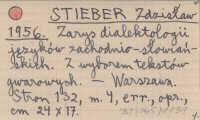 STIEBER Zdzisław
1956. Zarys dialektologii
języków zachodnio-słowiań-
skich. Z wyborem tekstów
gwarowych. — Warszawa.
Stron 132, m. 4, err., opr.,
cm 24 x 17.